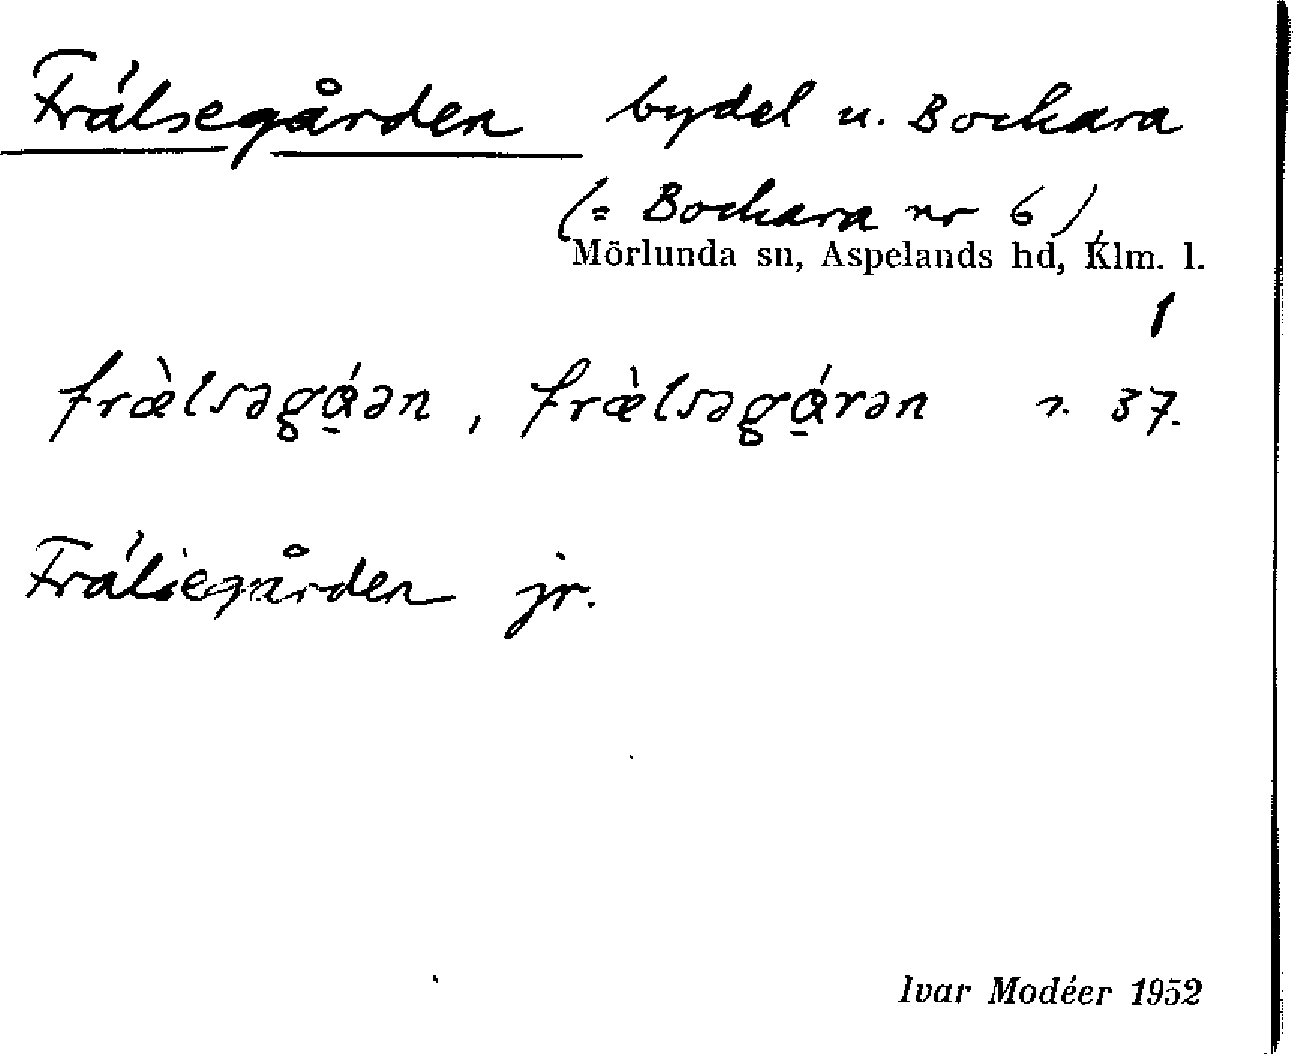 Frälsegården bydel u. Bockara
(= Bockara nr 6),
Mörlunda sn, Aspelands hd, Klm. l.
1
fræ̀lsəgɑ̱́ən, fræ̀lsəgɑ̱́rən s. 37.
Frälsegården jr.
Ivar Modéer 1952